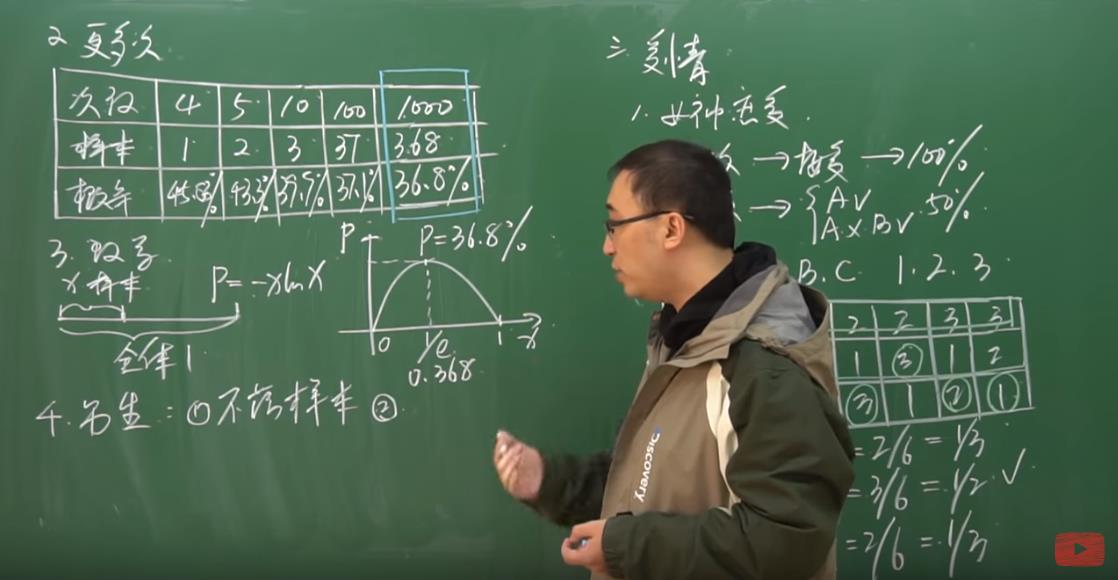 2 更多次
次数 4 5 10 100 1000
样本 1 2 3 37 368
概率 45.83% 43.3% 39.9% 37.1% 36.8%
3. 数学
x 样本
P=-xlnX
全体1
P
P=36.8%
0 1/e 1 x
0.368
4. 男生：①不谈样本 ②
三.爱情
1.女神恋爱
次→接受→100%
→{AV 50%
A.X.BV
B.C 1.2.3
2 2 3 3
1 ③ 1 2
③ 1 ② ①
=2/6=1/3
=3/6=1/2 ✓
=2/6=1/3
Discovery